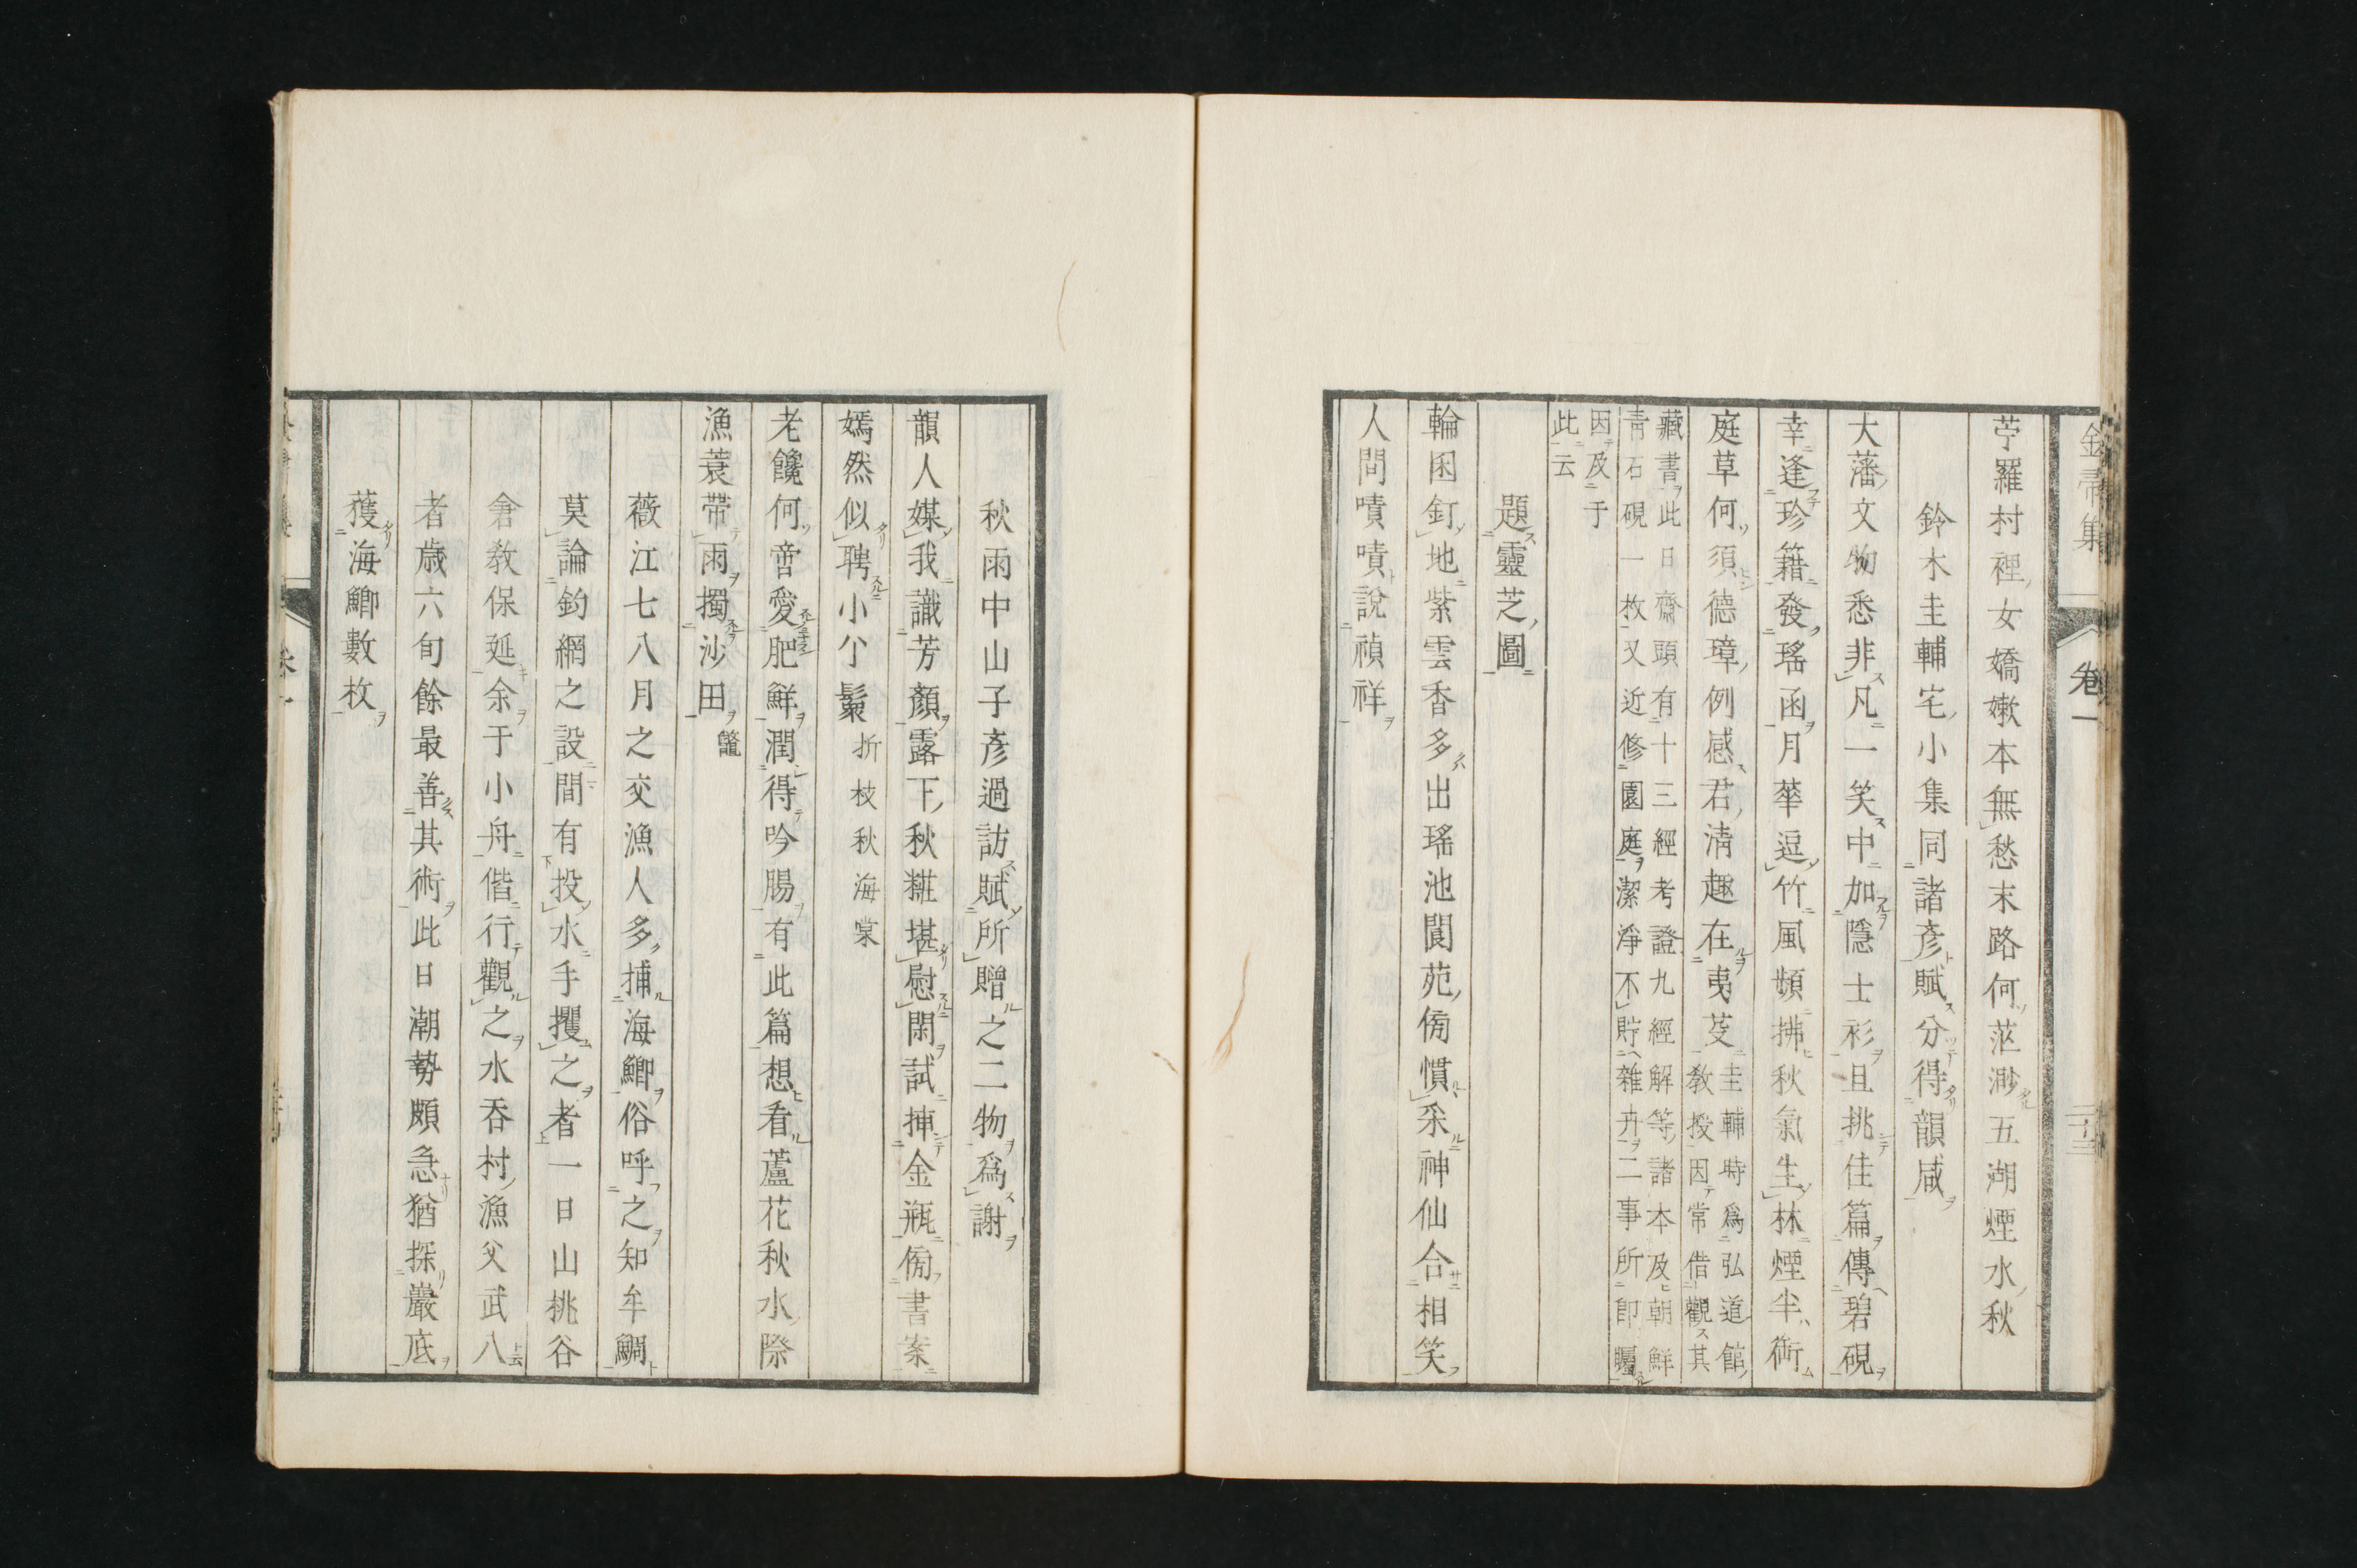 苧羅村裡女嬌嫩本無愁末路何茫渺五湖煙水秋
鈴木圭輔宅小集同諸彥賦分得韻咸
大藩文物悉非凡一笑中加隱士衫且挑佳篇傳碧硯
幸逢珍籍發瑤函月華逗竹風頻拂秋氣生林煙半銜
庭草何須德璋例感君淸趣在夷芟
圭輔時爲弘道館
敎授因常借觀其
藏書此日齋頭有十三經考證九經解等諸本及朝鮮
靑石硯一枚又近修園庭潔淨不貯雜卉二事所卽矚
因及于
此云
題靈芝圖
輪囷釘地紫雲香多出瑤池閬苑傍慣采神仙合相笑
人間嘖嘖說禎祥
卷一
秋雨中山子彥過訪賦所贈之二物爲謝
韻人媒我識芳顏露下秋糚堪慰閑試揷金瓶傍書案
嫣然似聘小个鬟
折枝秋海棠
老饞何啻愛肥鮮潤得吟腸有此篇想看蘆花秋水際
漁蓑帶雨擉沙田
鼈
薇江七八月之交漁人多捕海鯽俗呼之知牟鯛
莫論釣網之設間有投水手攫之者一日山桃谷
倉敎保延余于小舟偕行觀之水呑村漁父武八
者歲六旬餘最善其術此日潮勢頗急猶探巖底
獲海鯽數枚